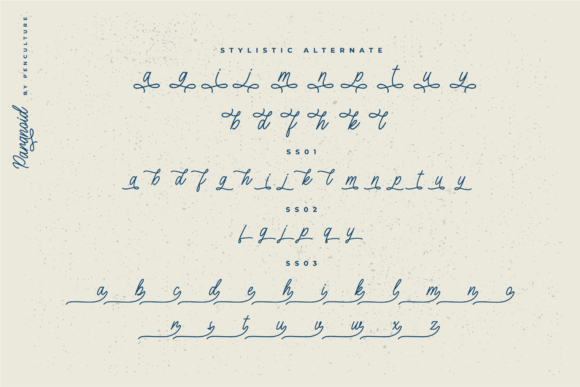 Paranoid
BY PENCULTURE
STYLISTIC ALTERNATE
a g i j m n p t u y
b d f h k l
SS01
a b d f g h i j k l m n p t u y
SS02
f g j p q y
SS03
a b c d e h i k l m n o
r s t u v w x z